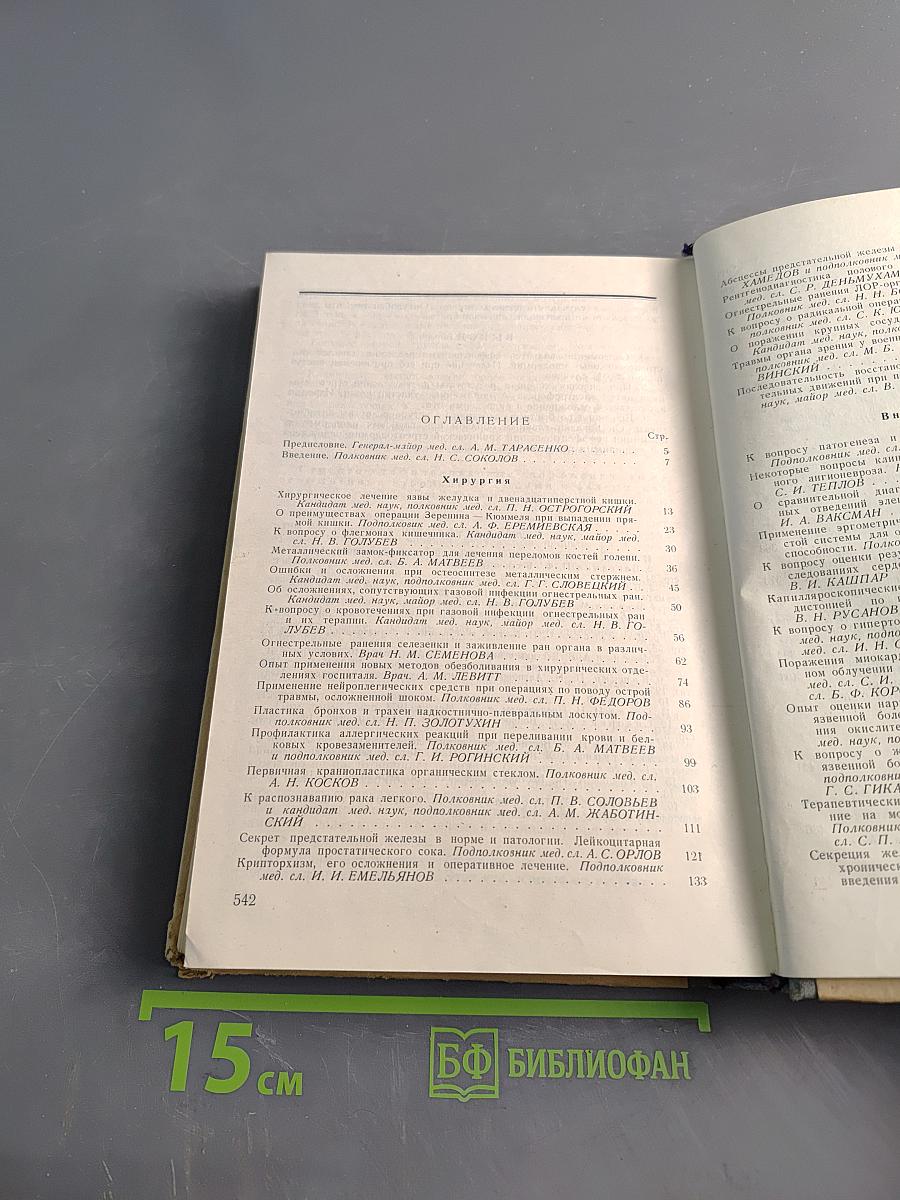 ОГЛАВЛЕНИЕ
Стр.
Предисловие. Генерал-майор мед. сл. А. М. ТАРАСЕНКО . . . . . . 5
Введение. Полковник мед. сл. Н. С. СОКОЛОВ . . . . . . . . . . 7
Хирургия
Хирургическое лечение язвы желудка и двенадцатиперстной кишки.
Кандидат мед. наук, полковник мед. сл. П. Н. ОСТРОГОРСКИЙ 13
О преимуществах операции Зеренина — Кюммеля при выпадении пря-
мой кишки. Подполковик мед. сл. А. Ф. ЕРЕМИЕВСКАЯ . . . . . 23
К вопросу о флегмонах кишечника. Кандидат мед. наук, майор мед.
сл. Н. В. ГОЛУБЕВ . . . . . . . . . . 30
Металлический замок-фиксатор для лечения переломов костей голени.
Полковник мед. сл. Б. А. МАТВЕЕВ . . . . . . . . . . 36
Ошибки и осложнения при остеосинтезе металлическим стержнем.
Кандидат мед. наук, подполковник мед. сл. Г. Г. СЛОВЕЦКИЙ . . 45
Об осложнениях, сопутствующих газовой инфекции огнестрельных ран.
Кандидат мед. наук, майор мед. сл. Н. В. ГОЛУБЕВ . . . . . . 50
К вопросу о кровотечениях при газовой инфекции огнестрельных ран
и их терапии. Кандидат мед. наук, майор мед. сл. Н. В. ГО-
ЛУБЕВ . . . . . . . . . . 56
Огнестрельные ранения селезенки и заживление ран органа в различ-
ных условиях. Врач Н. М. СЕМЕНОВА . . . . . . . . . . 62
Опыт применения новых методов обезболивания в хирургических отде-
лениях госпиталя. Врач. А. М. ЛЕВИТТ . . . . . . . . . . 74
Применение нейроплегических средств при операциях по поводу острой
травмы, осложненной шоком. Полковник мед. сл. П. Н. ФЕДОРОВ 86
Пластика бронхов и трахеи надкостнично-плевральным лоскутом. Под-
полковник мед. сл. Н. П. ЗОЛОТУХИН . . . . . . . . . . 93
Профилактика аллергических реакций при переливании крови и бел-
ковых кровезаменителей. Полковник мед. сл. Б. А. МАТВЕЕВ
и подполковник мед. сл. Г. И. РОГИНСКИЙ . . . . . . . . . . 99
Первичная краниопластика органическим стеклом. Полковник мед. сл.
А. Н. КОСКОВ . . . . . . . . . . 103
К распознаванию рака легкого. Полковник мед. сл. П. В. СОЛОВЬЕВ
и кандидат мед. наук, подполковник мед. сл. А. М. ЖАБОТИН-
СКИЙ . . . . . . . . . . 111
Секрет предстательной железы в норме и патологии. Лейкоцитарная
формула простатического сока. Подполковник мед. сл. А. С. ОРЛОВ 121
Крипторхизм, его осложнения и оперативное лечение. Подполковник
мед. сл. И. И. ЕМЕЛЬЯНОВ . . . . . . . . . . 133
542
Абсцессы предстательной железы
ХАМЕДОВ и подполковник
Рентгенодиагностика полового
мед. сл. С. Р. ДЕНЬМУХАМ
Огнестрельные ранения ЛОР-орг
Полковник мед. сл. Н. Н.
К вопросу о радикальной опера
полковник мед. сл. С. К. Ю
О поражении крупных сосуд
Кандидат мед. наук, полко
Травмы органа зрения у военн
полковник мед. сл. М. Б.
ВИНСКИЙ . . . . . .
Последовательность восстано
тельных движений при п
наук, майор мед. сл. В.
Вн
К вопросу патогенеза и
Подполковник мед. сл.
Некоторые вопросы клин
ного ангионевроза.
С. И. ТЕПЛОВ . .
О сравнительной диаг
ных отведений эле
И. А. ВАКСМАН
Применение эргометрич
стой системы для о
способности. Полко
К вопросу оценки резу
следованиях серде
В. И. КАШПАР
Капилляроскопические
дистонией по
В. Н. РУСАНОВ
К вопросу о гиперто
мед. наук, подпо
мед. сл. И. Н. С
Поражения миокард
ном облучении
мед. сл. С. И.
сл. Б. Ф. КОР
Опыт оценки нар
язвенной боле
ния окислите
мед. наук, по
К вопросу о ж
язвенной бо
подполковни
Г. С. ГИКА
Терапевтически
ние на мо
Полковник
сл. С. П.
Секреция же
хроническ
введения
15 см
БФ БИБЛИОФАН